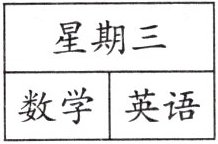 星期三
数学 英语